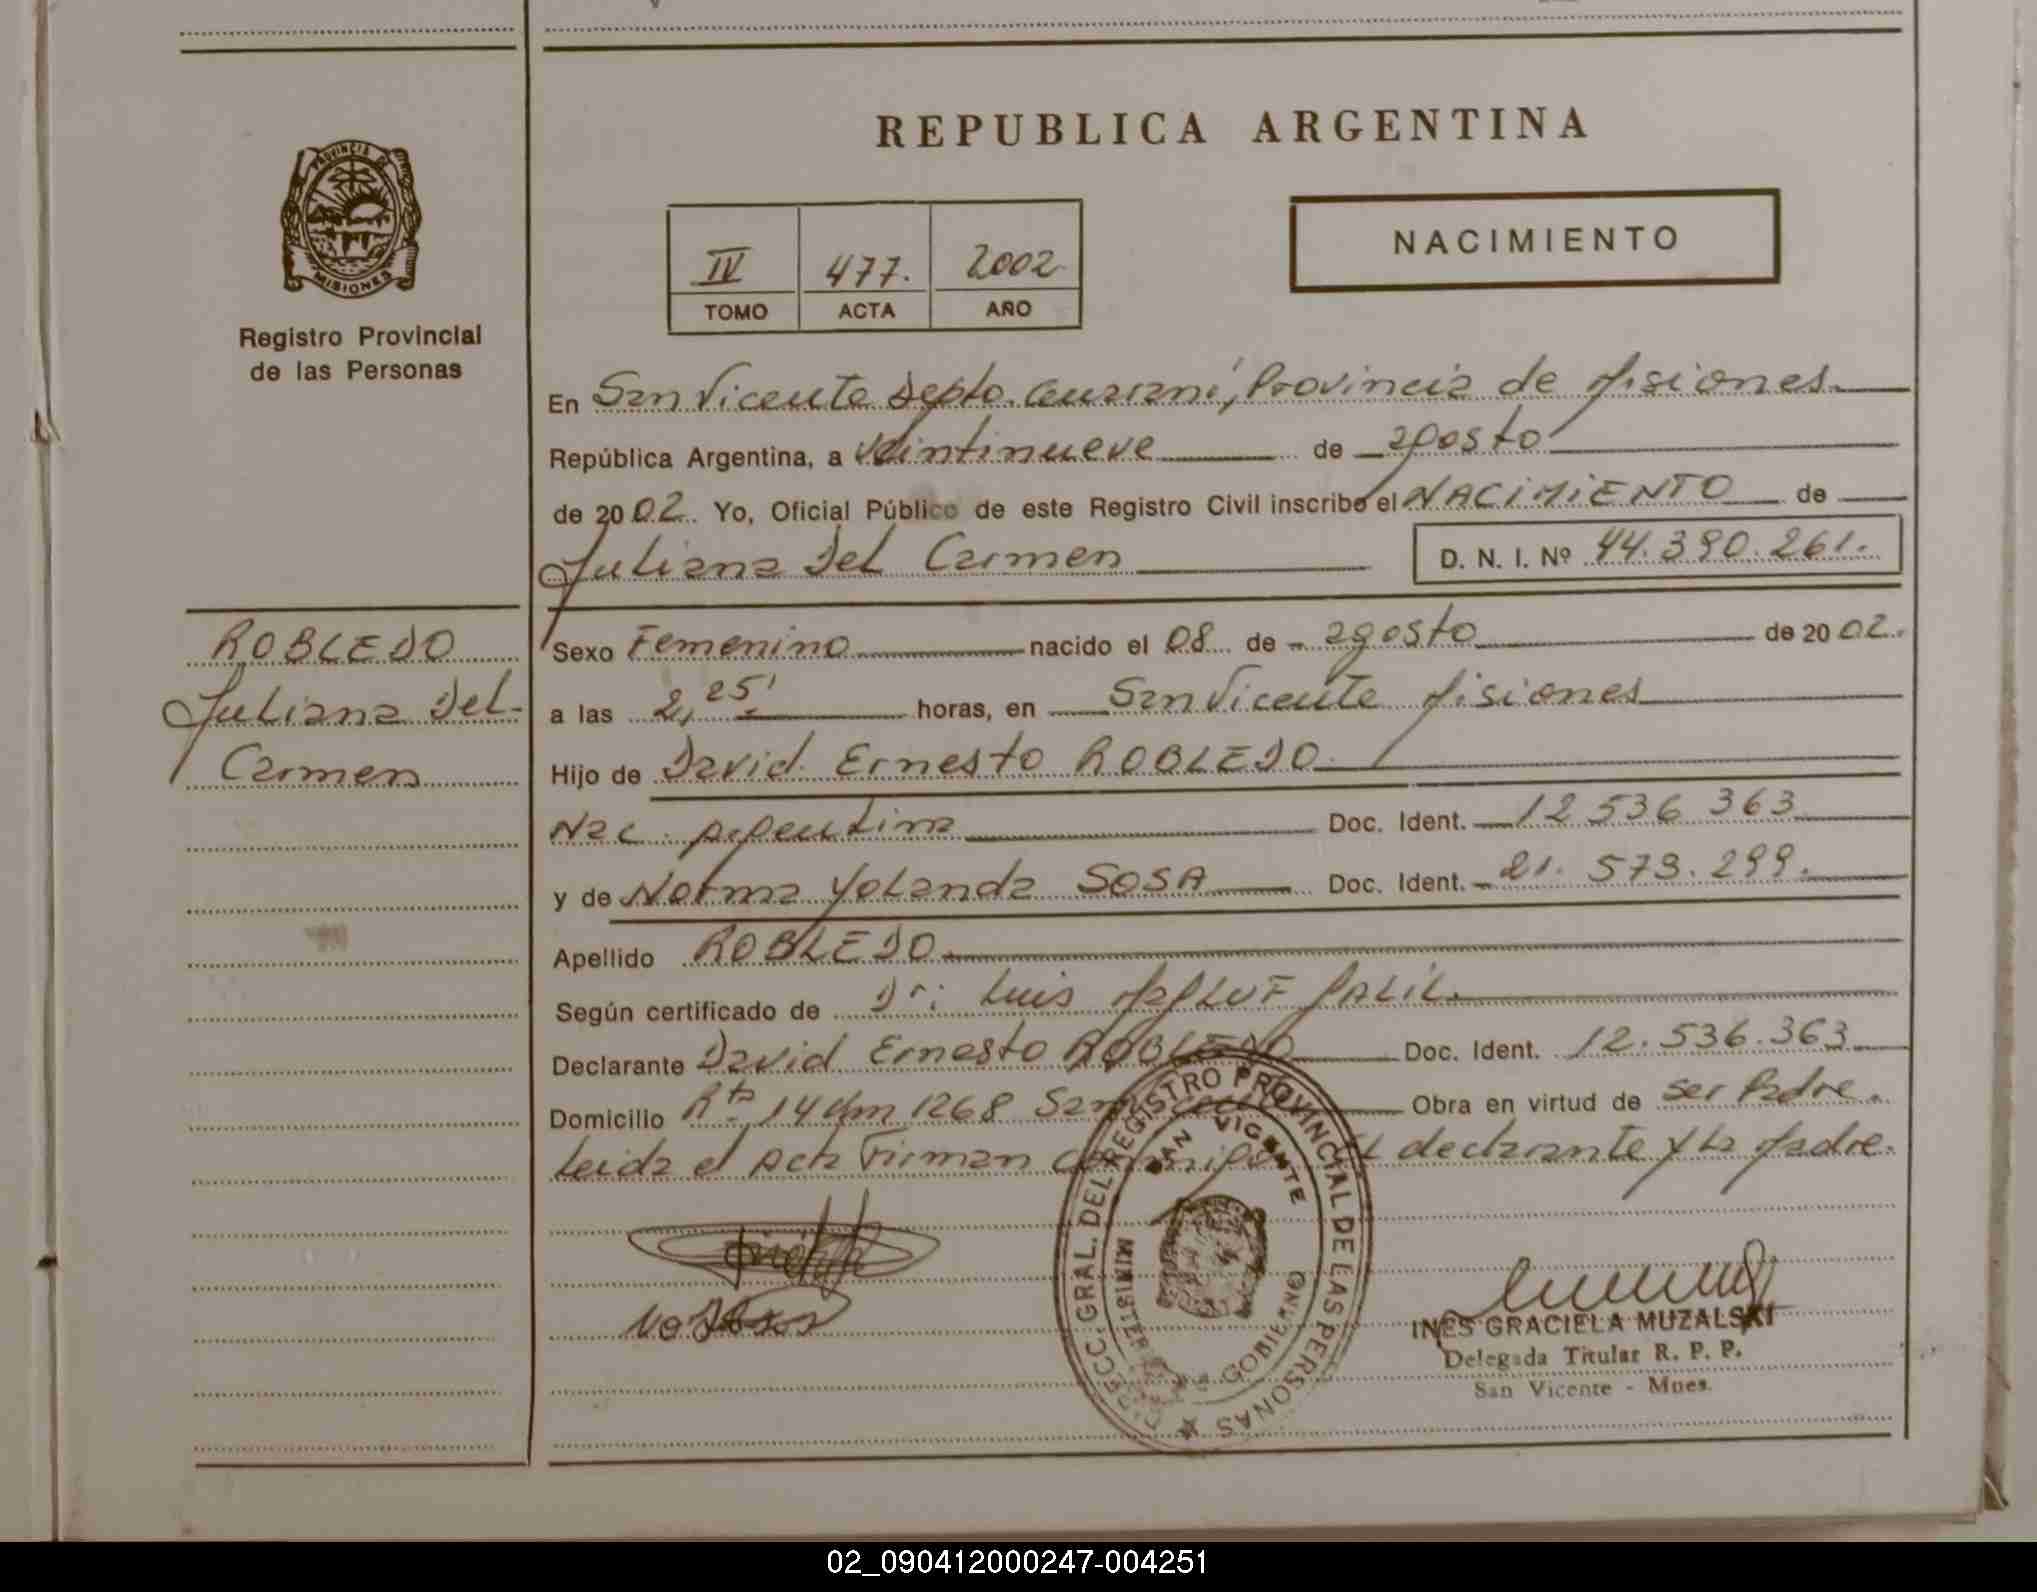 REPUBLICA ARGENTINA
PROVINCIA DE
MISIONES
Registro Provincial
de las Personas
IV 477. 2002
TOMO ACTA AÑO
NACIMIENTO
En San Vicente Depto. Guaraní, Provincia de Misiones.
República Argentina, a Veintinueve de agosto
de 2002. Yo, Oficial Público de este Registro Civil inscribo el NACIMIENTO de
Juliana Del Carmen D. N. I. Nº 44.390.261.
ROBLEDO
Juliana Del
Carmen
Sexo Femenino nacido el 08 de agosto de 2002.
a las 2,25' horas, en San Vicente Misiones
Hijo de David Ernesto ROBLEDO.
Nac. Argentina Doc. Ident. 12 536 363
y de Norma Yolanda SOSA Doc. Ident. 21. 573. 299.
Apellido ROBLEDO
Según certificado de Dr: Luis
Declarante David Ernesto ROBLEDO Doc. Ident. 12.536.363
Domicilio Rta 14 Km 1268 San Vicente Obra en virtud de ser Padre.
Leida el Acta Firman conmigo El declarante y la Madre.
DIRECC. GRAL. DEL REGISTRO PROVINCIAL DE LAS PERSONAS
SAN VICENTE
MINISTERIO GOBIERNO
INES GRACIELA MUZALSKI
Delegada Titular R. P. P.
San Vicente - Mnes.
02_090412000247-004251